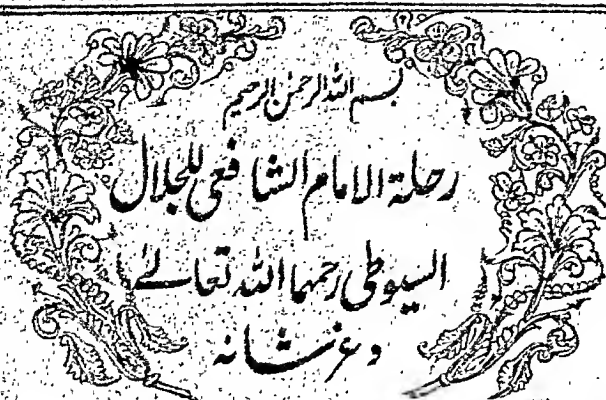 بسم الله الرحمن الرحيم
رحلة الامام الشافعي للجلال
السيوطي رحمهما الله تعالى
وعزشانه